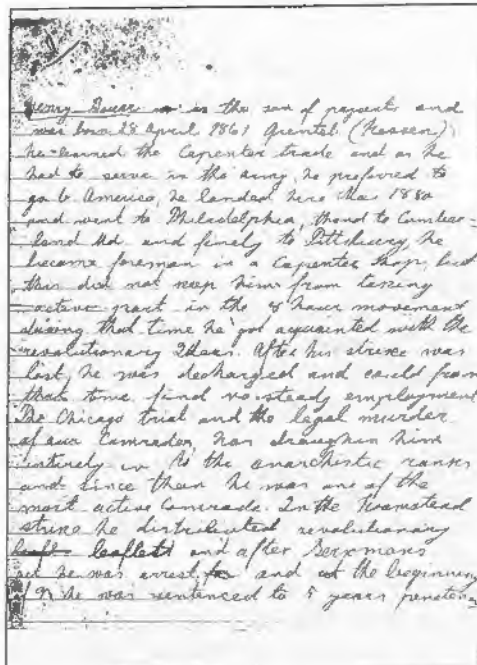 Henry Bauer is the son of pagsents and
was born 28 April 1861 (Hessen);
he learned the Capenter trade and as he
had to serve in the army, he preferred to
go to America, he landed here Mai 1880
and went to Philadelphia, thend to Cumber-
land Md. and finely to Pittsburg, he
became foreman in a Capenter shop, but
this did not keep him from taking
active part in the 8 hour movement
during that time he got acquainted with the
revolutionary Ideas. After his strike was
lost, he was decharged and could from
than time find no steady employment
The Chicago trial and the legal murder
of our Comrades, has
intirely in to the anarchistic ranks
and since than he was one of the
most active Comrade. In the Homstead
strike he distributed revolutionary
leaflets and after Berkmans
he was arrest and at the beginning
he was sentenced to 5 years